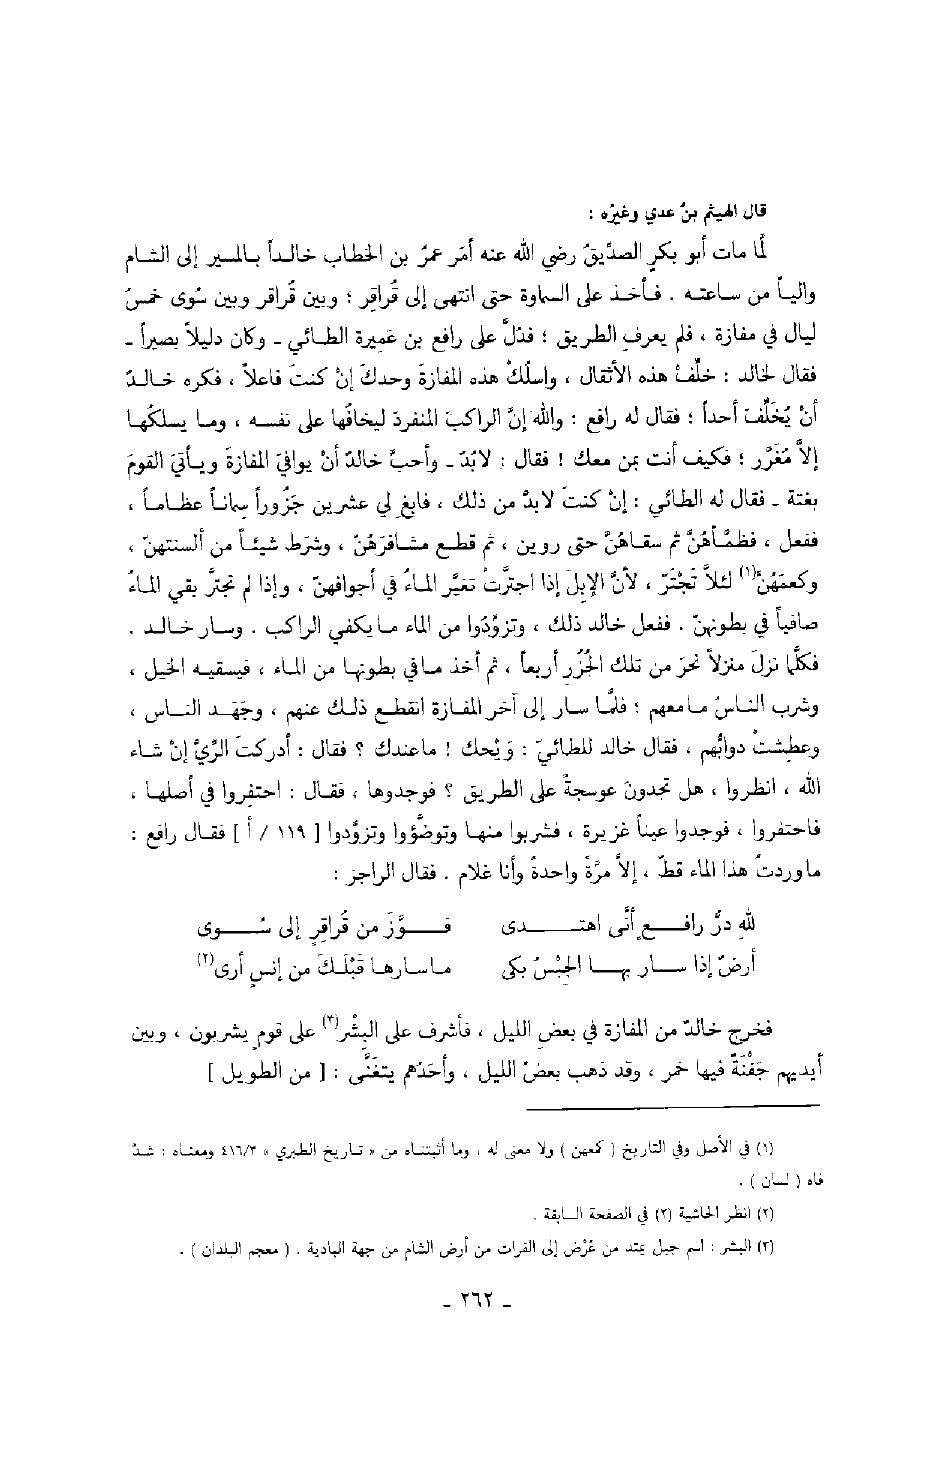 قال الهيثم بنُ عدي وغيرُه :
لمّا مات أبو بكرٍ الصدّيقُ رضي الله عنه أمَر عمرُ بن الخطاب خالداً بالمسير إلى الشام
والياً من ساعته . فأخذ على السماوة حتى انتهى إلى قُراقِر ؛ وبين قُراقر وبين سُوى خمسُ
ليال في مفازة ، فلم يعرفِ الطريق ؛ فدُلَّ على رافع بن عَميرة الطائي ـ وكان دليلاً بصيراً ـ
فقال لخالد : خلِّفْ هذه الأثقال ، واسلُكْ هذه المفازةَ وحدكَ إنْ كنتَ فاعلاً ، فكره خالدٌ
أنْ يُخَلِّفَ أحداً ؛ فقال له رافع : والله إنَّ الراكبَ المنفردَ ليخافُها على نفسه ، وما يسلكُها
إلاَّ مُغَرَّر ؛ فكيف أنت بمن معك ! فقال : لابُدّ ـ وأحبَّ خالدٌ أنْ يوافيَ المفازةَ ويأتيَ القومَ
بغتة ـ فقال له الطائي : إنْ كنتَ لابدَّ من ذلك ، فابغِ لي عشرين جَزُوراً سِماناً عظاماً ،
ففعل ، فظمَّأهُنَّ ثم سقاهُنَّ حتى روين ، ثم قطع مشافرَهُنّ ، وشرَط شيئاً من ألسنتهنّ ،
وكعمَهُنَّ(١) لئلاَّ تَجْتَرّ ، لأنَّ الإبِلَ إذا اجترَّتْ تغيَّر الماءُ في أجوافهنّ ، وإذا لم تجترَّ بقي الماءُ
صافياً في بطونهنّ . ففعل خالد ذلك ، وتزوَّدوا من الماء ما يكفي الراكب . وسار خالد .
فكلَّما نزلَ منزلاً نحرَ من تلك الجُزُرِ أربعاً ، ثم أخذ مافي بطونها من الماء ، فيسقيه الخيل ،
وشرب الناسُ مامعهم ؛ فلمَّا سار إلى آخر المفازة انقطع ذلك عنهم ، وجَهَد الناس ،
وعطِشتْ دوابُّهم ، فقال خالد للطائيّ : وَيْحك ! ماعندك ؟ فقال : أدركتَ الرِّيَّ إنْ شاء
الله ، انظروا ، هل تجدونَ عوسجةً على الطريق ؟ فوجدوها ، فقال : احتفِروا في أصلها ،
فاحتفروا ، فوجدوا عيناً غزيرة ، فشربوا منها وتوضَّؤوا وتزوَّدوا [ ١١٩ / أ ] فقال رافع :
ماوردتُ هذا الماء قطّ ، إلاَّ مرَّةً واحدةً وأنا غلام . فقال الراجز :
للهِ درُّ رافعٍ أنَّى اهتدى فوَّزَ من قُراقِرٍ إلى سُوى
أرضٌ إذا سار بها الجِبْسُ بكى ماسارها قَبْلَكَ من إنسٍ أرى(٢)
فخرج خالدٌ من المفازة في بعض الليل ، فأشرف على البِشْر(٣) على قومٍ يشربون ، وبين
أيديهم جَفْنَةٌ فيها خمر ، وقد ذهب بعضُ الليل ، وأحدُهم يتغَنَّى : [ من الطويل ]
(١) في الأصل وفي التاريخ ( كمعهن ) ولا معنى له ، وما أثبتناه من « تاريخ الطبري » ٤١٦/٣ ومعناه : شدّ
فاه ( لسان ) .
(٢) انظر الحاشية (٢) في الصفحة السابقة .
(٣) البشر : اسم جبل يمتد من عُرْض إلى الفرات من أرض الشام من جهة البادية . ( معجم البلدان ) .
ـ ٢٦٢ ـ